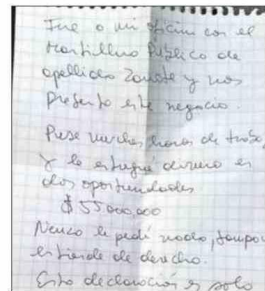 Fue a mi oficina con el
Martillero Público de
apellido Zarate y nos
presento este negocio.
Puse muchas horas de trabajo,
y le entregué dinero en
dos oportunidades
$ 55000,000
Nunca le pedí nada, tampoco
entiende de derecho.
Esta declaración es solo